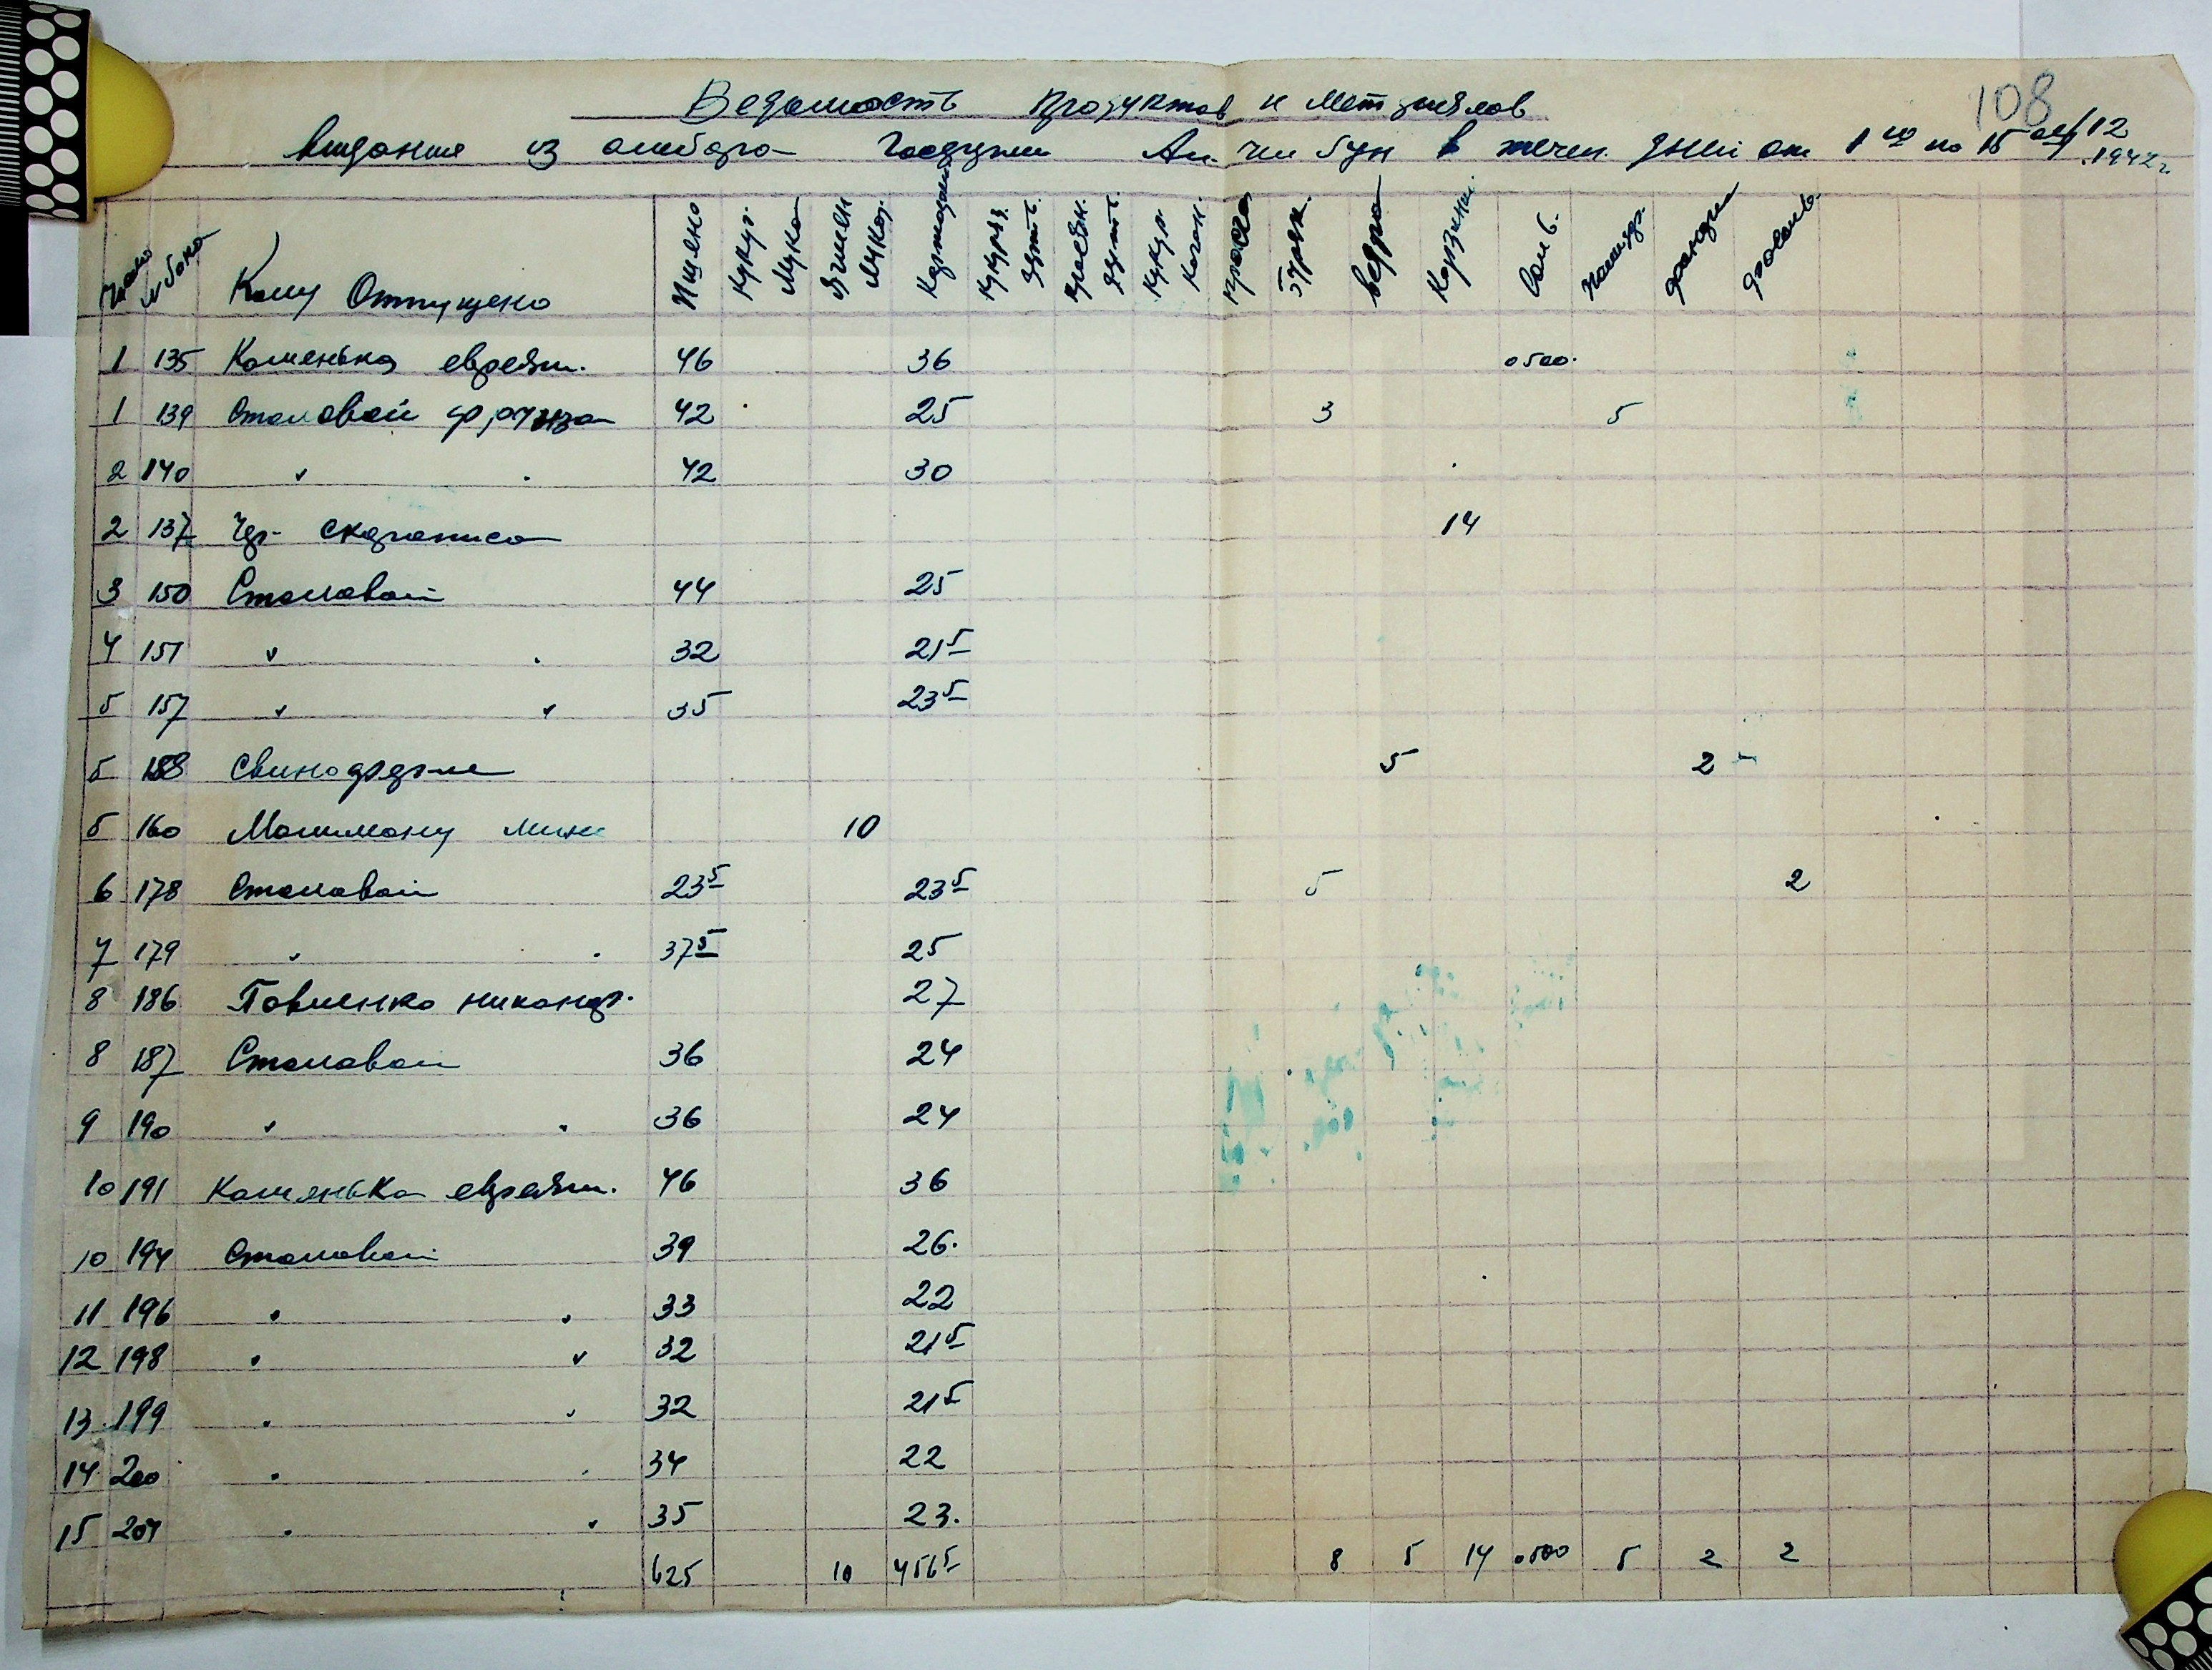 108
Ведомость продуктов и матэриялов
выданые из амбара Госдужи Ан-чи бун в течен. дней от 1го по 15 ое/12 1942 г.
Число № бона Кому Отпущено Пшено Кукур. Мука Ячмен Мука Картофель Кукуруз. дерть. просян. дерть. Кукур. Качан. проса бурак. ведра Корзины. Соль.
1 135 Каменька еврейск. 46 36 0500.
1 139 Столовой 42 25 3 5
2 140 " " 42 30
2 137 14
3 150 Столовой 44 25
4 151 " " 32 21 5
5 157 " " 35 23 5
5 188 Свиноферме 5 2
5 160 10
6 178 Столовой 23 5 23 5 5 2
7 179 " " 37 5 25
8 186 Павленко никандр. 27
8 187 Столовой 36 24
9 190 " " 36 24
10 191 Каменька еврейск. 46 36
10 194 Столовой 39 26.
11 196 " " 33 22
12 198 " " 32 21 5
13 199 " " 32 21 5
14 200 " " 34 22
15 204 " " 35 23.
625 10 456 5 8 5 14 0500 5 2 2